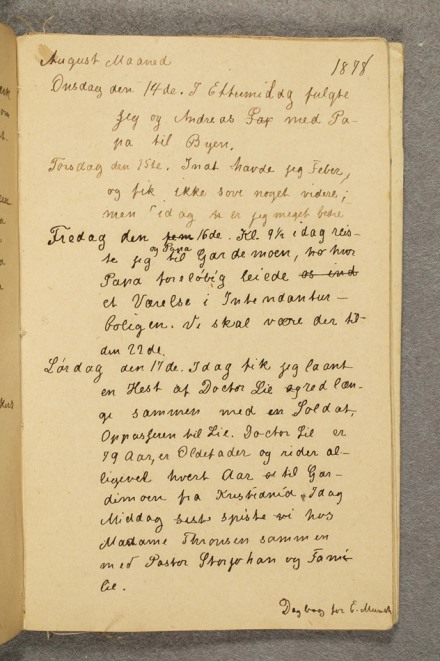 August Maaned 1878
Onsdag den 14de. I Ettermidag fulgte
jeg og Andreas Fax med Pa-
pa til Byen.
Torsdag den 15te. Inat havde jeg Feber,
og fik ikke sove noget videre;
men idag er jeg meget bedre
Fredag den 16de. Kl. 9½ idag reis-
te jeg og Papa til Gardemoen, hvor
Papa foreløbig leiede os ind
et Værelse i Intendantur-
boligen. Vi skal være der til
den 22de.
Lørdag den 17de. Idag fik jeg laant
en Hest af Doctor Lie og red læn-
ge sammen med en Soldat,
Oppasseren til Lie. Doctor Lie er
79 Aar, er Oldefader og rider al-
ligevel hvert Aar til Gar-
dimoen fra Kristiania. Idag
Middag spiste vi hos
Madame Thronsen sammen
med Pastor Storjohan og Fami
lie.
Dagbog for E. Munch